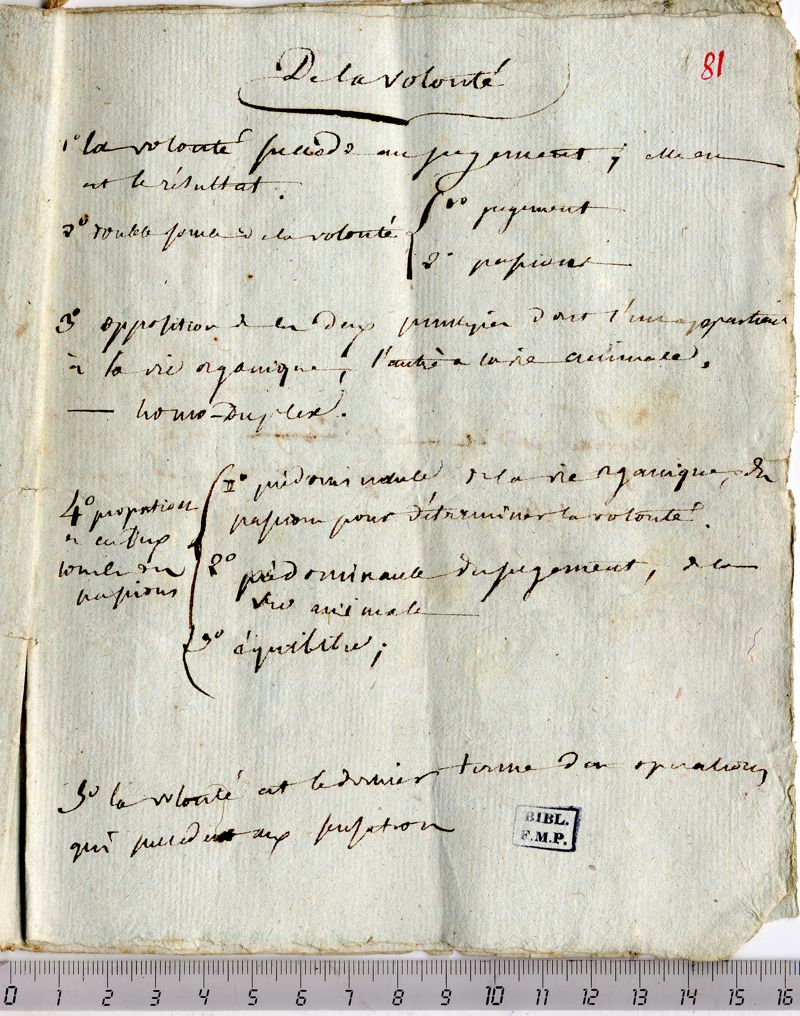 De la volonté
81
1° la volonté succède au jugement ; elle en
est le résultat.
2° double source de la volonté
1° jugement
2° passions
3° opposition de ces deux principes dont l'un appartient
à la vie organique, l'autre a la vie animale.
— homo-Duplex.
4° proportion
entre
des
passions
1° prédominance de la vie organique, des
passions pour déterminer la volonté.
2° prédominance du jugement, de la
vie animale
3° équilibre ;
5° la volonté est le dernier terme des opérations
qui succèdent aux sensation
BIBL.
F.M.P.
0 1 2 3 4 5 6 7 8 9 10 11 12 13 14 15 16